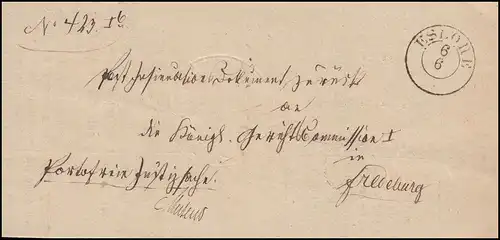 No 423. I b
ESLOHE
6
6
Post-Insinuations Dokument, zurück
an
die Königl. Gerichts Commission I
in
Portofreie Justizsache. Fredeburg